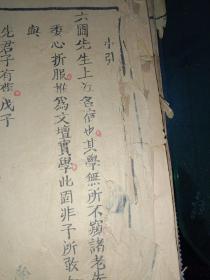 小引
六圃先生上方名宿也其學無所不窺諸老先
委心折服推爲文壇實學此固非予所敢
與
先君子有舊戊子